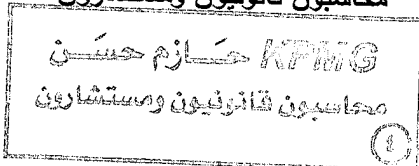 محاسبون قانونيون ومستشارون
KPMG حـــازم حسَـــن
محاسبون قانونيون ومستشارون
٤